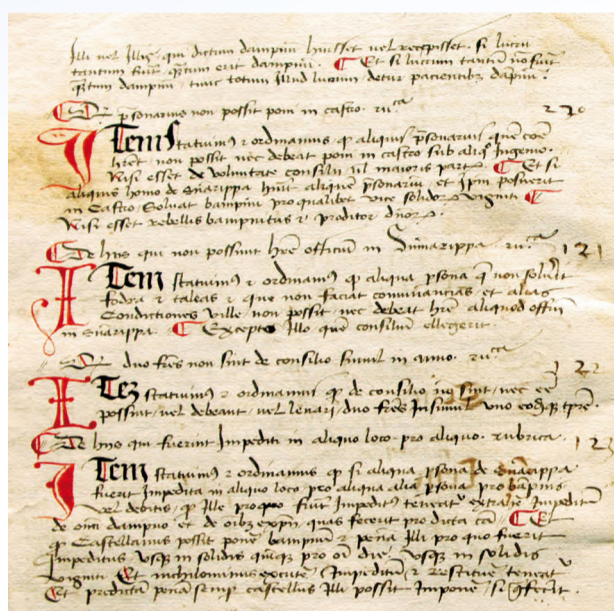 illi vel illis qui dictum dampnum hūisset vel recepisset. si lucrū
tantum fuit qͣtum erit dampnum. Et si lucrum tantū nō fuīt
qͣtum dampnum, tunc totum illud lucrum detur pacientibꝫ dapnū.
Qꝫ psonarius non possit poni in castro. ruᶜᵃ 220
Item statuimꝰ et ordinamus ꝙ aliquis psonarius quē coē
hr̄et non possit nec debeat poni in castro sub aliqͦ ingenio.
Nisi esset de voluntate consilii vl maioris partis. Et si
aliquis homo de Suarippa hūit aliquē psonariū et ipm posuerit
in castro. Solvat bampnū pro qualibet vice solidos viginti
Nisi esset rebellis bampnitus et proditor dnoꝝ.
De hiis qui non possint hr̄e officiū in Sumarippa. ruᶜᵃ 121
Item statuimꝰ et ordinamꝰ ꝙ aliqua psona q̄ non solvīt
fodra et taleas et que non faciat comunancias et alias
Condictiones ville non possit nec debeat hr̄e aliquod offitiū
in Suarippa. Excepto illo quē consiliū ellegerit.
Qꝫ duo fr̄es non sint de consilio simul in anno. ruᶜᵃ 122
Iteꝫ statuimꝰ et ordinamꝰ ꝙ de consilio nō sint, nec eē
possint, vel debeant, vel levari, duo fr̄es insimul uno eodēqꝫ tp̄re.
De hiis qui fuerint impediti in aliquo loco pro aliquo. rubrica. 123
Item statuimꝰ et ordinamus ꝙ si aliqua psona de Suarippa
fuerit impedita in aliquo loco pro aliqua alia psona pro bampnis
vel debitis, ꝙ ille pro quo fuīt impeditꝰ teneatᵘʳ extrahē impeditū
de oī dampno et de oibꝫ expn̄ quas fecerit pro dicta cā. Et
ꝙ castellanus possit ponē bampnū et penā illi pro quo fuerit
impeditus usqꝫ in solidis quīqꝫ pro oī die, usqꝫ in solidis
viginti. Et nichilominus excutē impeditū et restituē teneatᵘʳ
Et predictā penā semp castellanꝰ illi possit imponē, si